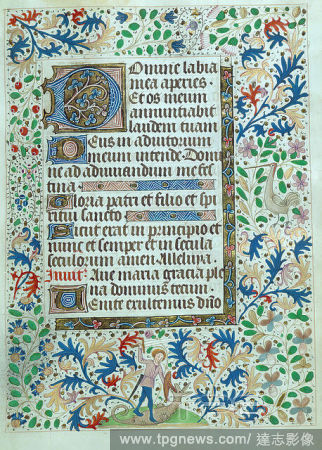 Domine labia
mea aperies.
Et os meum
annuntiabit
laudem tuam
Deus in adiutorium
meum intende. Domi
ne ad adiuvandum me fes
tina
Gloria patri et filio et spi
ritui sancto
Sicut erat in principio et
nunc et semper et in secula
seculorum amen. Alleluya.
Invit. Ave maria gracia ple
na dominus tecum
Venite exultemus dño
www.tpgnews.com / 達志影像